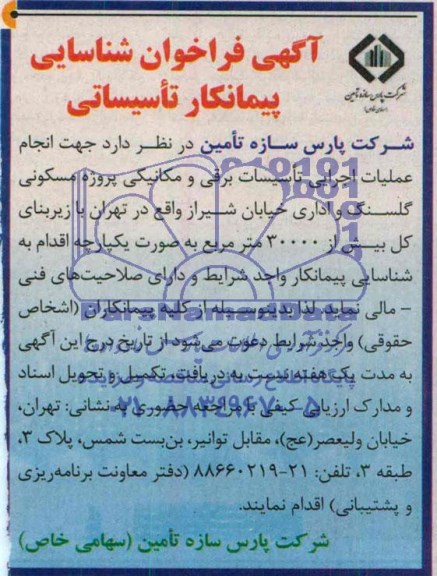 آگهی فراخوان شناسایی
پیمانکار تأسیساتی
شرکت پارس سازه تأمین
(سهامی خاص)
شرکت پارس سازه تأمین در نظر دارد جهت انجام
عملیات اجرایی تأسیسات برقی و مکانیکی پروژه مسکونی
گلسنگ و اداری خیابان شیراز واقع در تهران با زیربنای
کل بیش از ۳۰۰۰۰ متر مربع به صورت یکپارچه اقدام به
شناسایی پیمانکار واجد شرایط و دارای صلاحیت‌های فنی
– مالی نماید. لذا بدینوسیله از کلیه پیمانکاران (اشخاص
حقوقی) واجد شرایط دعوت می‌شود از تاریخ درج این آگهی
به مدت یک هفته نسبت به دریافت، تکمیل و تحویل اسناد
و مدارک ارزیابی کیفی با مراجعه حضوری به نشانی: تهران،
خیابان ولیعصر(عج)، مقابل توانیر، بن‌بست شمس، پلاک ۳،
طبقه ۳، تلفن: ۲۱-۸۸۶۶۰۲۱۹ (دفتر معاونت برنامه‌ریزی
و پشتیبانی) اقدام نمایند.
شرکت پارس سازه تأمین (سهامی خاص)
ParsNamadData
پایگاه اطلاع رسانی مناقصه و مزایده
۰۲۱-۸۸۳۴۹۶۷۰-۵